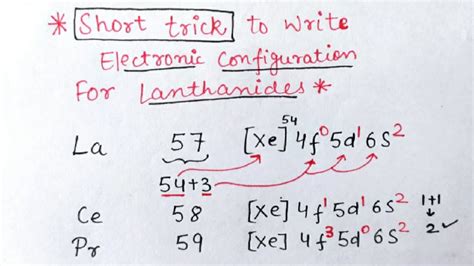 * Short trick to write
Electronic Configuration
For Lanthanides *
La 57 [Xe]⁵⁴ 4f⁰ 5d¹ 6s²
54+3
Ce 58 [Xe] 4f¹ 5d¹ 6s² 1+1
Pr 59 [Xe] 4f³ 5d⁰ 6s² 2 ✓